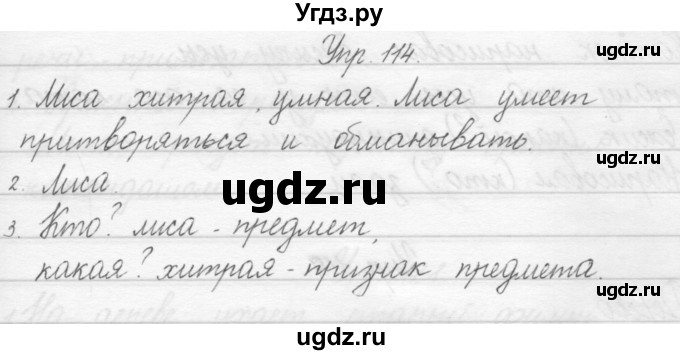 Угдз.ру
Упр. 114.
1. Лиса хитрая, умная. Лиса умеет
притворяться и обманывать.
ugdz.ru
2. Лиса.
ugdz.ru
3. Кто? лиса - предмет,
ugdz.ru
какая? хитрая - признак предмета.
ugdz.ru
ugdz.ru